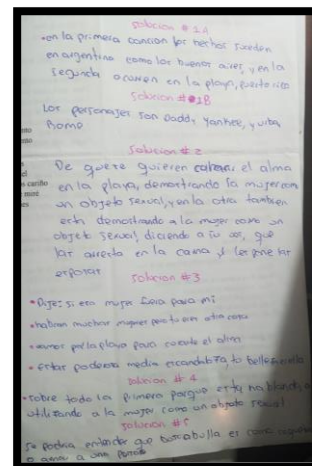 solución # 1A
• en la primera cancion los hechos suceden
en argentina como los buenos aires, y en la
segunda ocurren en la playa, puerto rico
Solución # 1B
Los personajes son Daddy Yankee, y
Romo
Solución # 2
De quere quieren el alma
en la playa, demostrando la mujer com
un objeto sexual, en la otra tambien
esta demostrando a la mujer como un
objeto sexual, diciendo a su vez, que
las en la cama y les pone las
esposas
cariño
solución #3
• Dije: si esa mujer fuera para mi
• habran muchas mujeres pero tu eres otra cosa
• vamos pa la playa para el alma
• estas poderosa media tu belleza
solucion # 4
• sobre todo la primera porque esta hablando,
utilizando a la mujer como un objeto sexual
solucion # 5
se podria entender que es como
o amar a una